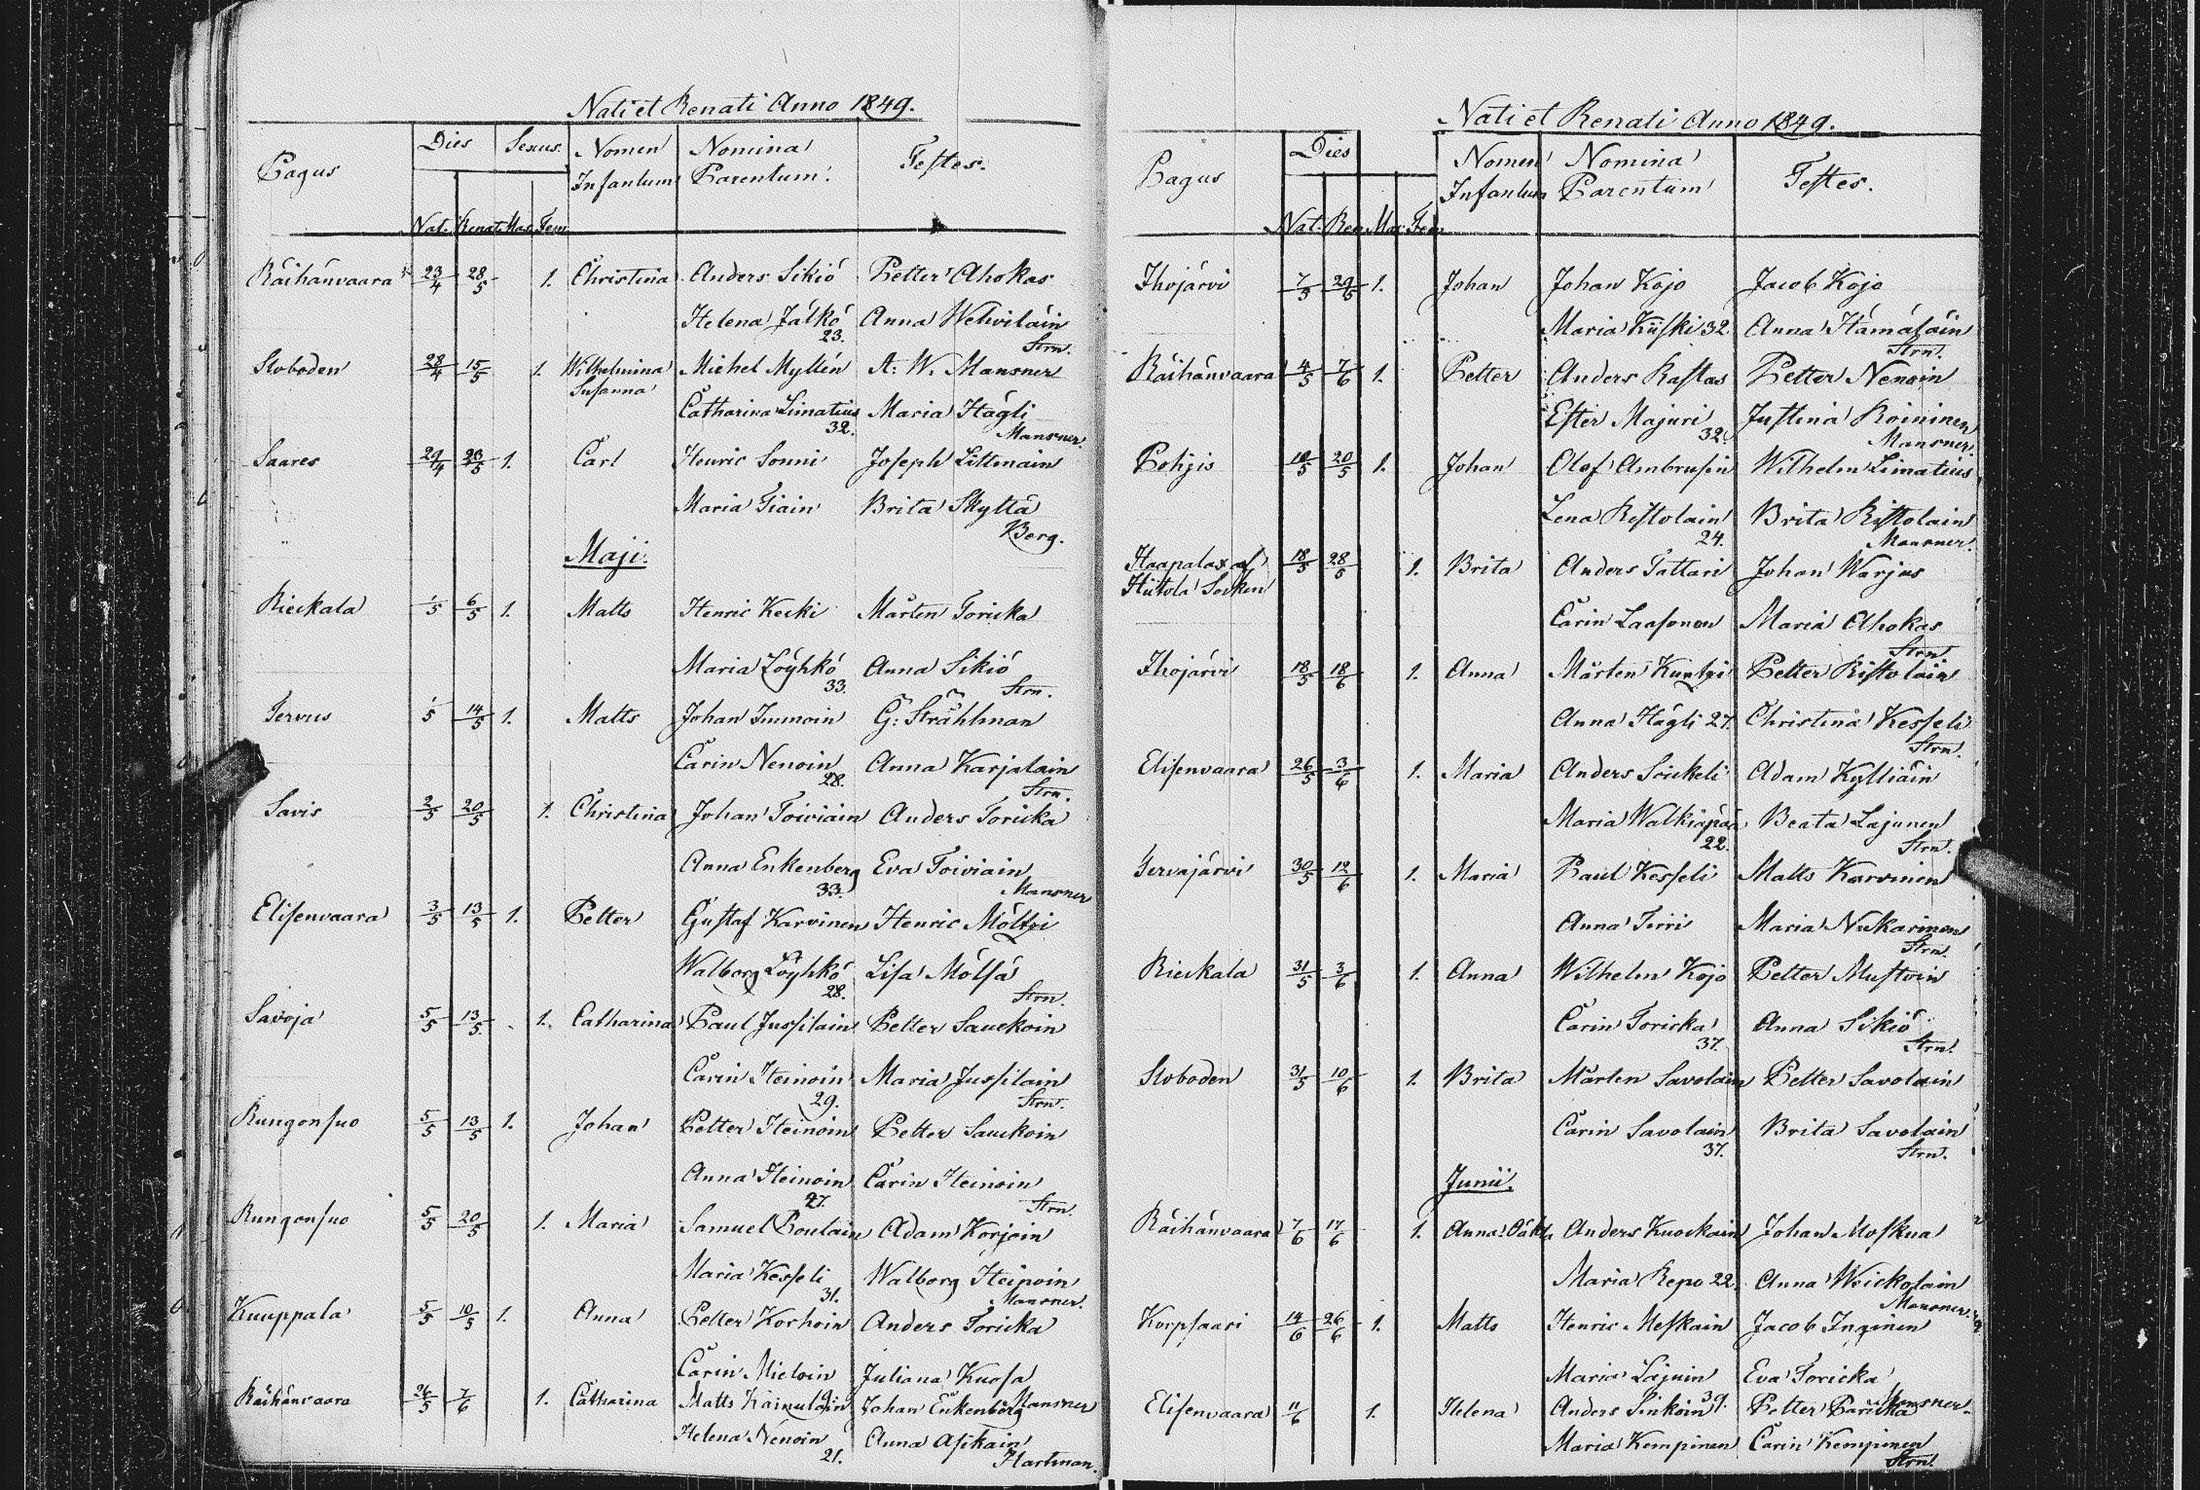 Nati et Renati Anno 1849.
Pagus Dies Sexus. Nomen Infantum Nomina Parentum. Testes.
Nat. Renat. Mas. Fem.
Räihänvaara 23/4 28/5 1. Christina Anders Sikiö Petter Ahokas
Helena Jälkö 23. Anna Wehviläin
Strn.
Sloboden 28/4 15/5 1. Wilhelmina Susanna Michel Myllin A. W. Mansner
Catharina Limatius 32. Maria Hägli
Mansner.
Saares 29/4 20/5 1. Carl Henric Sonni Joseph Littmain
Maria Tiain Brita Skyttä
Berg.
Maji.
Rieckala 1/5 6/5 1. Matts Henric Kecki Mårten Toricka
Maria Löyhkö 33. Anna Sikiö
Strn.
Tervus 1/5 14/5 1. Matts Johan Immoin G. Stråhlman
Carin Nenoin 28. Anna Karjalain
Strn.
Savis 2/5 20/5 1. Christina Johan Toiviain Anders Toricka
Anna Enkenberg 33. Eva Toiviain
Mansner
Elisenvaara 3/5 13/5 1. Petter Gustaf Karvinen Henric Möltzi
Walborg Löyhkö 28. Lisa Mölsä
Strn.
Savoja 5/5 13/5 1. Catharina Paul Jussilain Petter Sauckoin
Carin Heinoin 29. Maria Jussilain
Strn.
Rungonsuo 5/5 13/5 1. Johan Petter Heinoin Petter Sauckoin
Anna Heinoin 27. Carin Heinoin
Strn.
Rungonsuo 5/5 20/5 1. Maria Samuel Poulain Adam Korjoin
Maria Kesseli 31. Walborg Heinoin
Mansner.
Kuuppala 5/5 10/5 1. Anna Petter Korhoin Anders Toricka
Carin Mieloin Juliana Kuosa
Mansner
Räihänvaara 26/5 7/6 1. Catharina Matts Kainulain Johan Enkenberg
Helena Nenoin 21. Anna Asikain
Hartman.
Nati et Renati Anno 1849.
Pagus Dies Nomen Infantum Nomina Parentum Testes.
Nat. Ren. Mas. Fem.
Ihojärvi 7/5 29/5 1. Johan Johan Kojo Jacob Kojo
Maria Kiiski 32 Anna Hämäläin
Strn.
Räihänvaara 4/5 7/6 1. Petter Anders Rastas Petter Nenoin
Ester Majuri 32. Justina Roininen
Mansner.
Pohjis 10/5 20/5 1. Johan Olof Ambrusin Wilhelm Limatius
Lena Ristolain 24. Brita Ristolain
Mansner.
Haapalax af Hiitola Socken 18/5 28/5 1. Brita Anders Tattari Johan Warjus
Carin Laasonen Maria Ahokas
Strn.
Ihojärvi 18/5 18/6 1. Anna Mårten Kuntzi Petter Ristolain
Anna Hägli 27. Christina Kesseli
Strn.
Elisenvaara 26/5 3/6 1. Maria Anders Soickeli Adam Kylliäin
Maria Walkiapää 22. Beata Lajunen
Strn.
Tervajärvi 30/5 12/6 1. Maria Paul Kesseli Matts Karvinen
Anna Tirri Maria Nukarinen
Strn.
Rieckala 31/5 3/6 1. Anna Wilhelm Kojo Petter Mustoin
Carin Toricka 37. Anna Sikiö
Strn.
Sloboden 31/5 10/6 1. Brita Mårten Savolain Petter Savolain
Carin Savolain 37. Brita Savolain
Strn.
Junii.
Räihänvaara 7/6 17/6 1. Anna Anders Kuockain Johan Moskua
Maria Repo 22. Anna Woickolain
Mansner.
Korpsaari 14/6 26/6 1. Matts Henric Meskain Jacob Inginen
Maria Lajuin 39. Eva Toricka
Mansner.
Elisenvaara 11/6 1. Helena Anders Sinkoin Petter Paricka
Maria Kempinen Carin Kempinen
Strn.